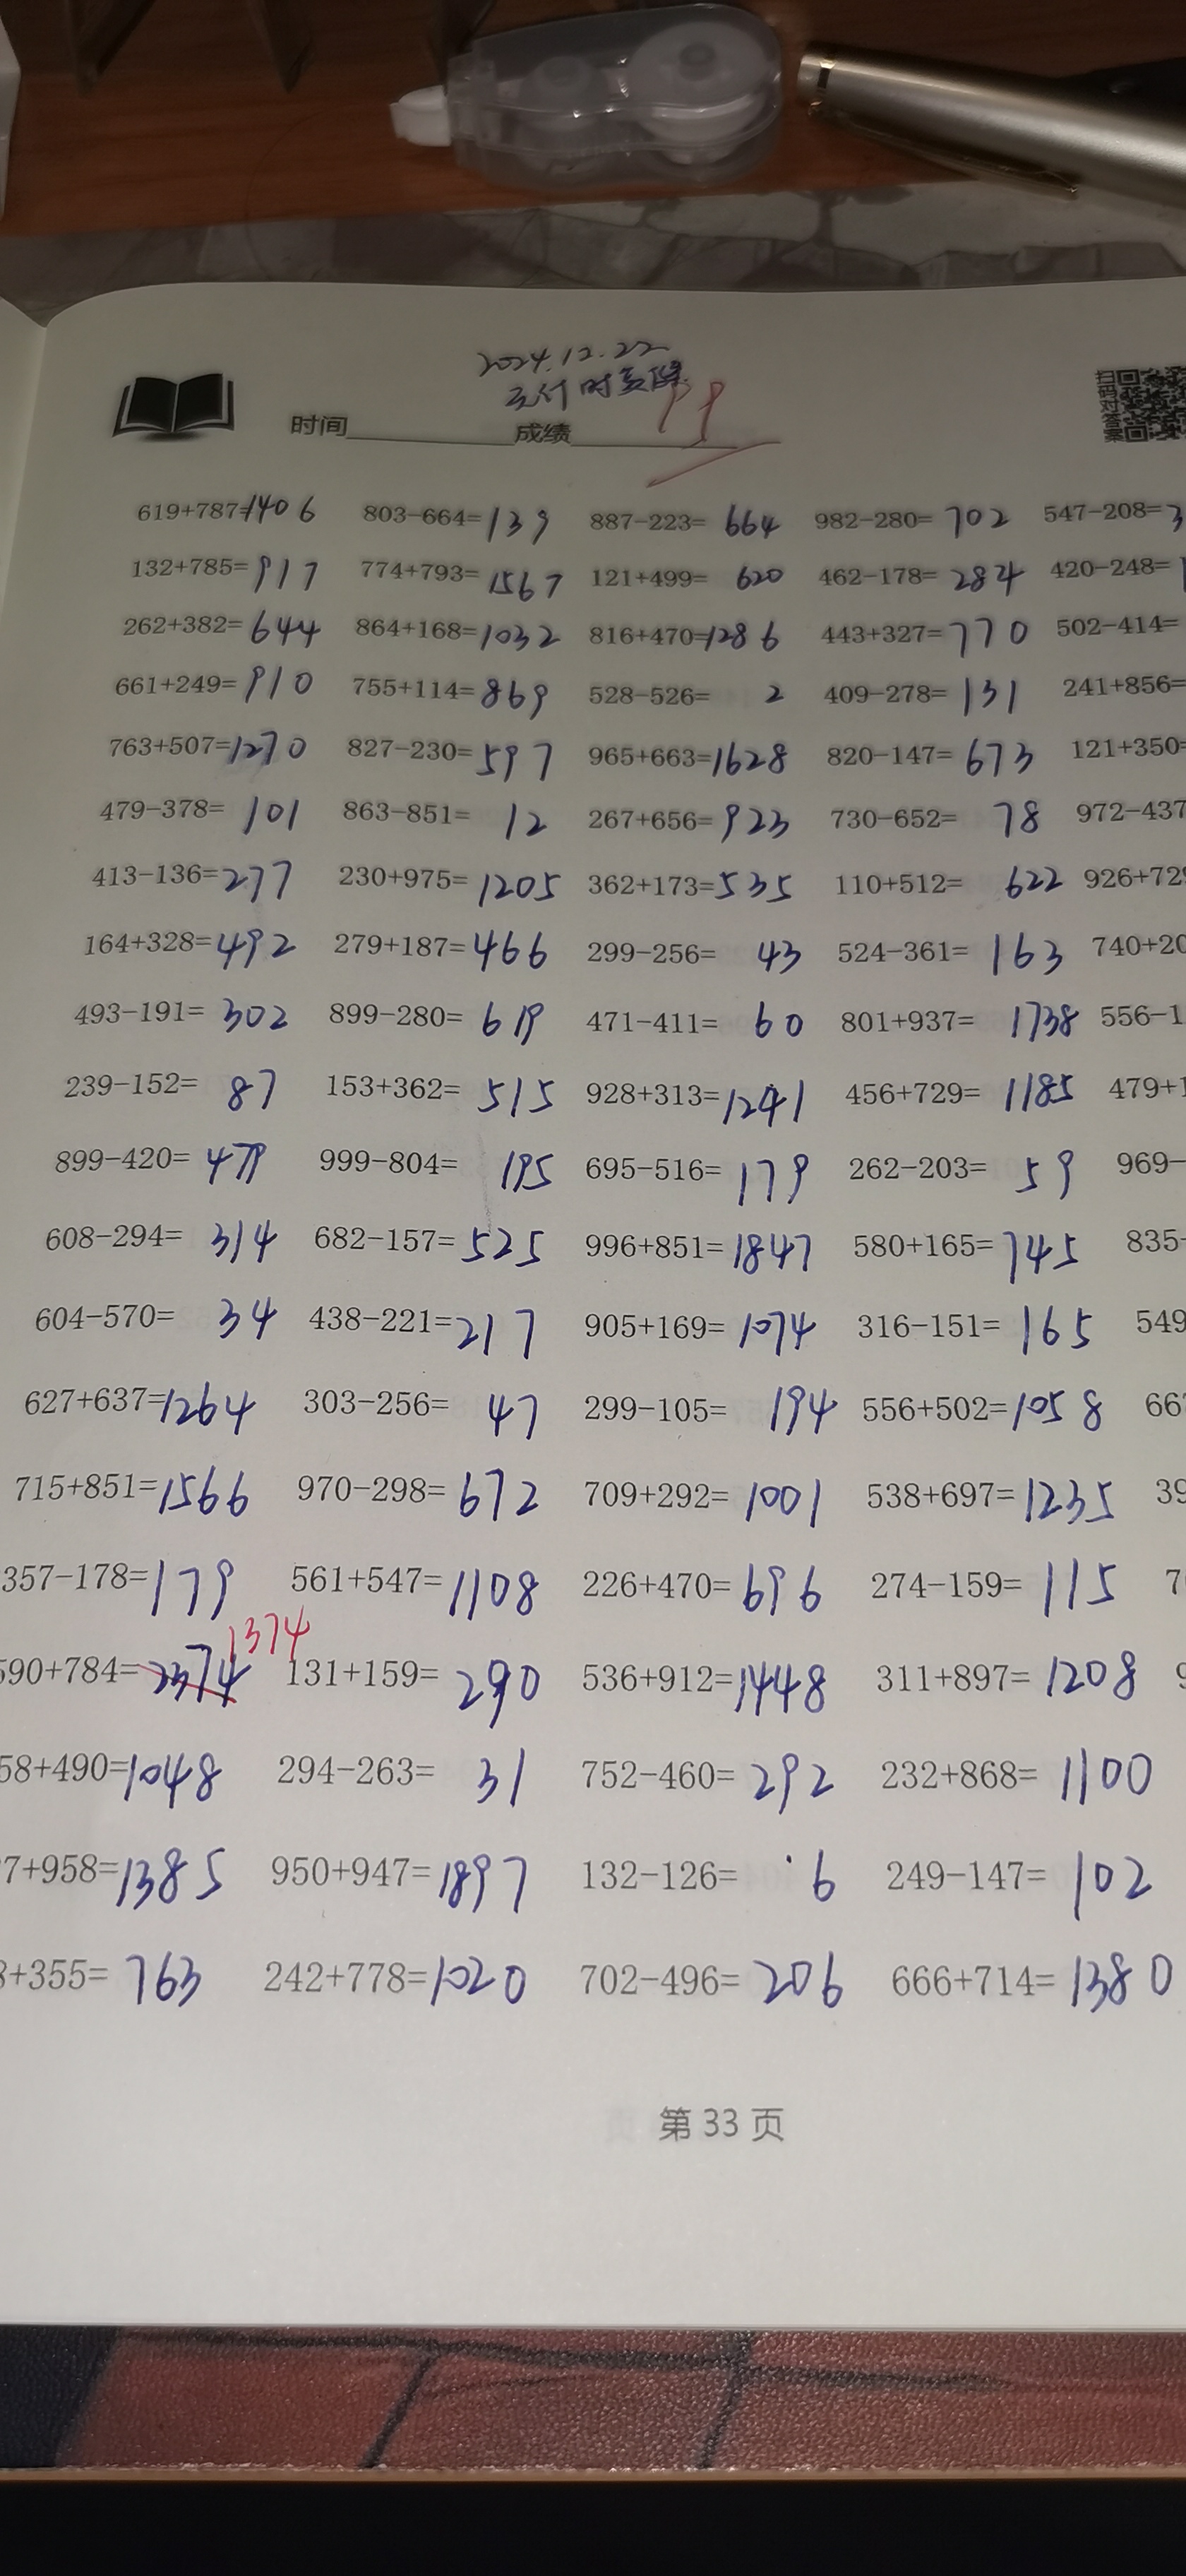 2024.12.22
时间 成绩 99
扫码对答案
619+787=1406 803-664=139 887-223=664 982-280=702 547-208=3
132+785=917 774+793=1567 121+499=620 462-178=284 420-248=1
262+382=644 864+168=1032 816+470=1286 443+327=770 502-414=
661+249=910 755+114=869 528-526=2 409-278=131 241+856=
763+507=1270 827-230=597 965+663=1628 820-147=673 121+350=
479-378=101 863-851=12 267+656=923 730-652=78 972-437
413-136=277 230+975=1205 362+173=535 110+512=622 926+729
164+328=492 279+187=466 299-256=43 524-361=163 740+20
493-191=302 899-280=619 471-411=60 801+937=1738 556-1
239-152=87 153+362=515 928+313=1241 456+729=1185 479+1
899-420=479 999-804=195 695-516=179 262-203=59 969-
608-294=314 682-157=525 996+851=1847 580+165=745 835-
604-570=34 438-221=217 905+169=1074 316-151=165 549
627+637=1264 303-256=47 299-105=194 556+502=1058 66
715+851=1566 970-298=672 709+292=1001 538+697=1235 39
357-178=179 561+547=1108 226+470=696 274-159=115 7
1374
590+784=2374 131+159=290 536+912=1448 311+897=1208 9
58+490=1048 294-263=31 752-460=292 232+868=1100
7+958=1385 950+947=1897 132-126=6 249-147=102
8+355=763 242+778=1020 702-496=206 666+714=1380
第 33 页